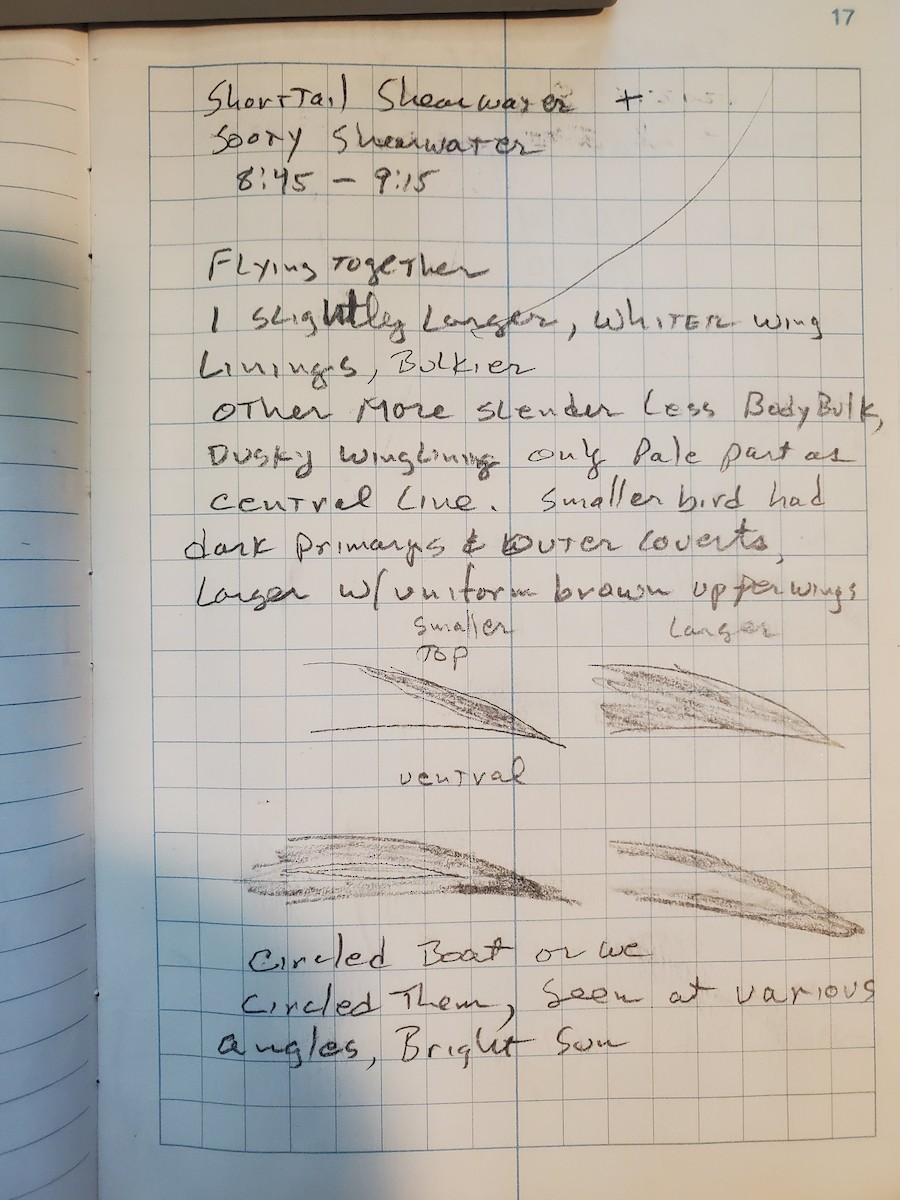 17
ShortTail Shearwater +
Sooty Shearwater
8:45 – 9:15
Flying Together
1 slightly Larger, Whiter wing
Linings, Bulkier
Other More slender Less BodyBulk,
Dusky WingLining only Pale part as
central Line. Smaller bird had
dark primarys & Outer Coverts,
Larger w/uniform brown upperwings
Smaller Larger
Top
Ventral
Circled Boat or we
Circled Them, Seen at various
angles, Bright Sun